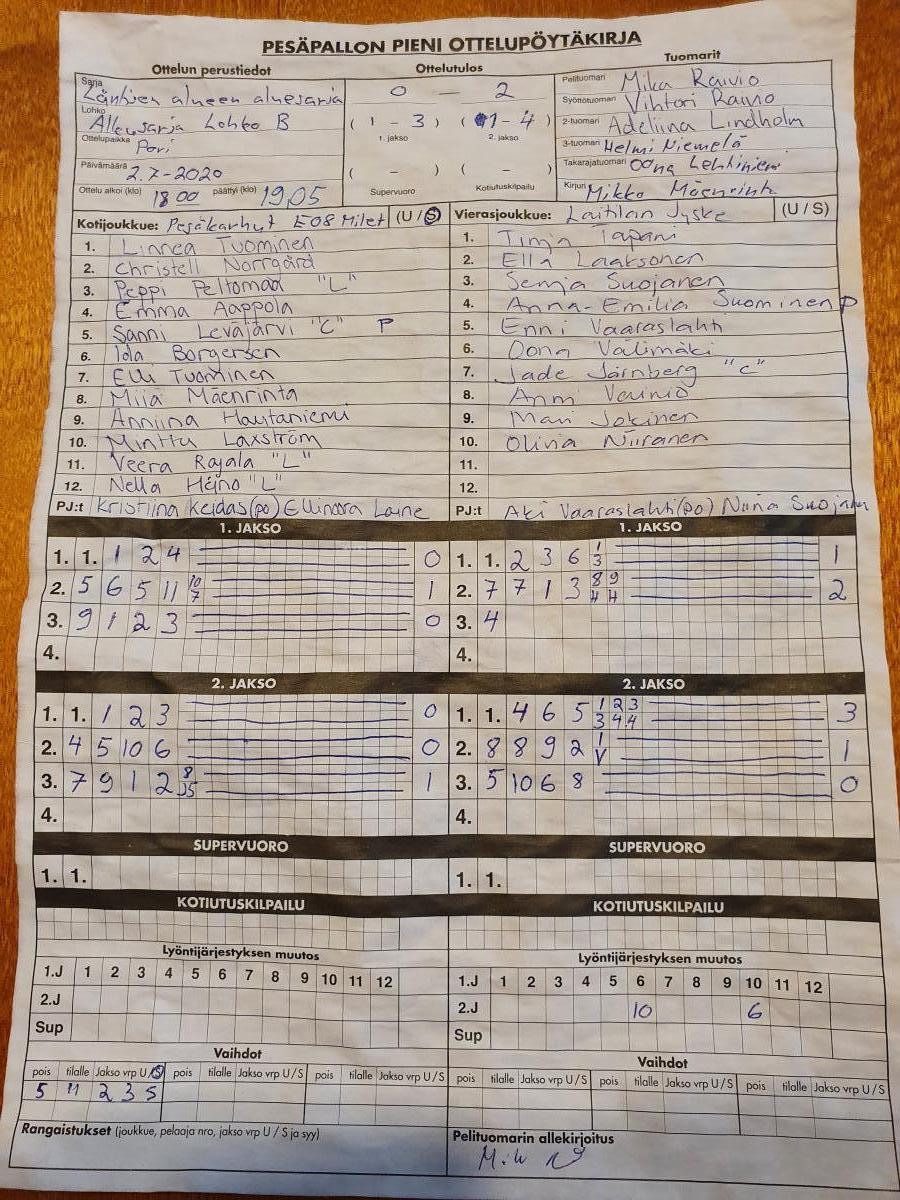 PESÄPALLON PIENI OTTELUPÖYTÄKIRJA
Ottelun perustiedot
Sarja Läntisen alueen aluesarja
Lohko Alleusarja Lohko B
Ottelupaikka Pori
Päivämäärä 2.7-2020
Ottelu alkoi (klo) 18 00 päättyi (klo) 19,05
Ottelutulos
0 — 2
( 1 - 3 ) ( 1 - 4 )
1. jakso 2. jakso
( - ) ( - )
Supervuoro Kotiutuskilpailu
Tuomarit
Pelituomari Mika Raivio
Syöttötuomari Vihtori Raivio
2-tuomari Adeliina Lindholm
3-tuomari Helmi Niemelä
Takarajatuomari Oona Lehtiniemi
Kirjuri Mikko Mäenrinta
Kotijoukkue: Pesäkarhut E08 Milet (U / S)
1. Linnea Tuominen
2. Christell Norrgård
3. Peppi Peltomaa "L"
4. Emma Aappola
5. Sanni Leväjärvi "C" P
6. Ida Borgersen
7. Elli Tuominen
8. Miia Mäenrinta
9. Anniina Hautaniemi
10. Minttu Laxström
11. Veera Rajala "L"
12. Nella Heino "L"
PJ:t Kristiina Keidas(po) Ellinoora Laine
Vierasjoukkue: Laitilan Jyske (U / S)
1. Timja Tapani
2. Ella Laaksonen
3. Senja Suojanen
4. Anna-Emilia Suominen P
5. Enni Vaaraslahti
6. Oona Välimäki
7. Jade Järnberg "C"
8. Anni Vainio
9. Mari Jokinen
10. Olina Niiranen
11.
12.
PJ:t Aki Vaaraslahti(po) Niina Suojanen
1. JAKSO
1. 1. 1 2 4 0
2. 5 6 5 11 10 7 1
3. 9 1 2 3 0
4.
1. JAKSO
1. 1. 2 3 6 1 3 1
2. 7 7 1 3 8 9 4 4 2
3. 4
4.
2. JAKSO
1. 1. 1 2 3 0
2. 4 5 10 6 0
3. 7 9 1 2 8 J5 1
4.
2. JAKSO
1. 1. 4 6 5 1 2 3 3 4 4 3
2. 8 8 9 2 1 V 1
3. 5 10 6 8 0
4.
SUPERVUORO
1. 1.
SUPERVUORO
1. 1.
KOTIUTUSKILPAILU
KOTIUTUSKILPAILU
Lyöntijärjestyksen muutos
1.J 1 2 3 4 5 6 7 8 9 10 11 12
2.J
Sup
Lyöntijärjestyksen muutos
1.J 1 2 3 4 5 6 7 8 9 10 11 12
2.J 10 6
Sup
Vaihdot
pois tilalle Jakso vrp U/S pois tilalle Jakso vrp U/S pois tilalle Jakso vrp U/S
5 11 2 3 S
Vaihdot
pois tilalle Jakso vrp U/S pois tilalle Jakso vrp U/S pois tilalle Jakso vrp U/S
Rangaistukset (joukkue, pelaaja nro, jakso vrp U / S ja syy)
Pelituomarin allekirjoitus